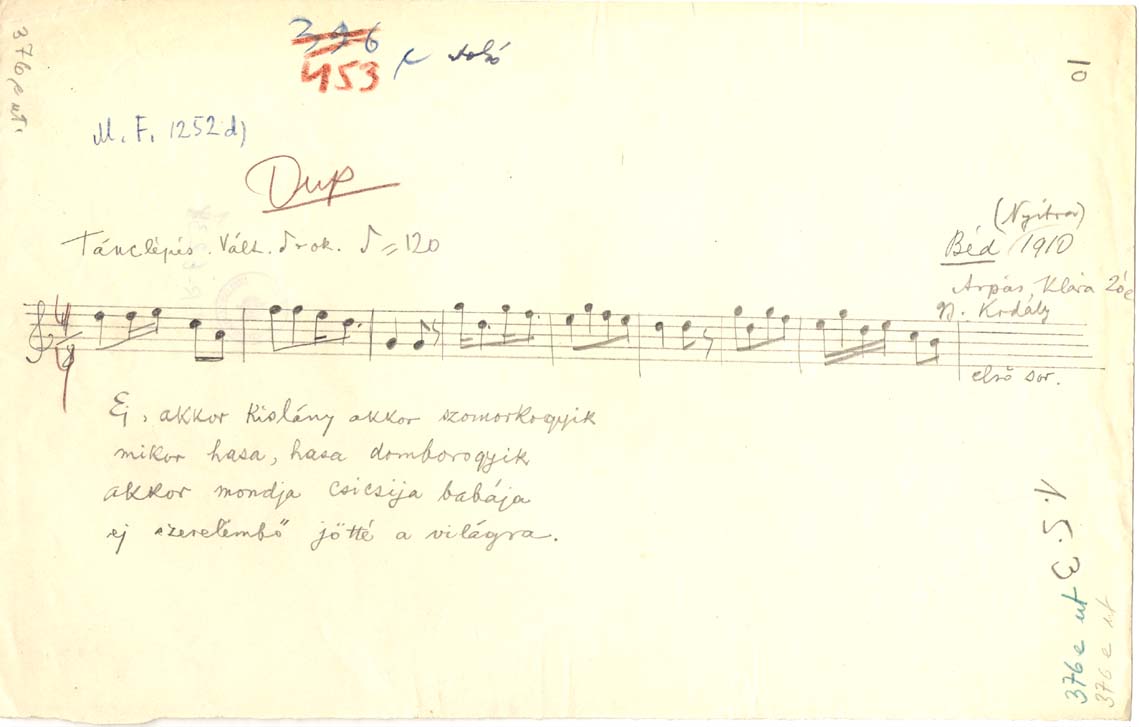 376 e ut.
396
453 alsó
10
M. F. 1252 d)
Dup
(Nyitra)
Tánclépés. Vált. ♪ =120
Béd 1910
Árpás Klára 20é
gy. Kodály
első sor.
Ej, akkor kislány akkor szomorkogyik
mikor hasa, hasa domborogyik
akkor mondja csicsija babája
ej szerelembő jötté a világra.
1.5.3
376 e ut
376 e ut